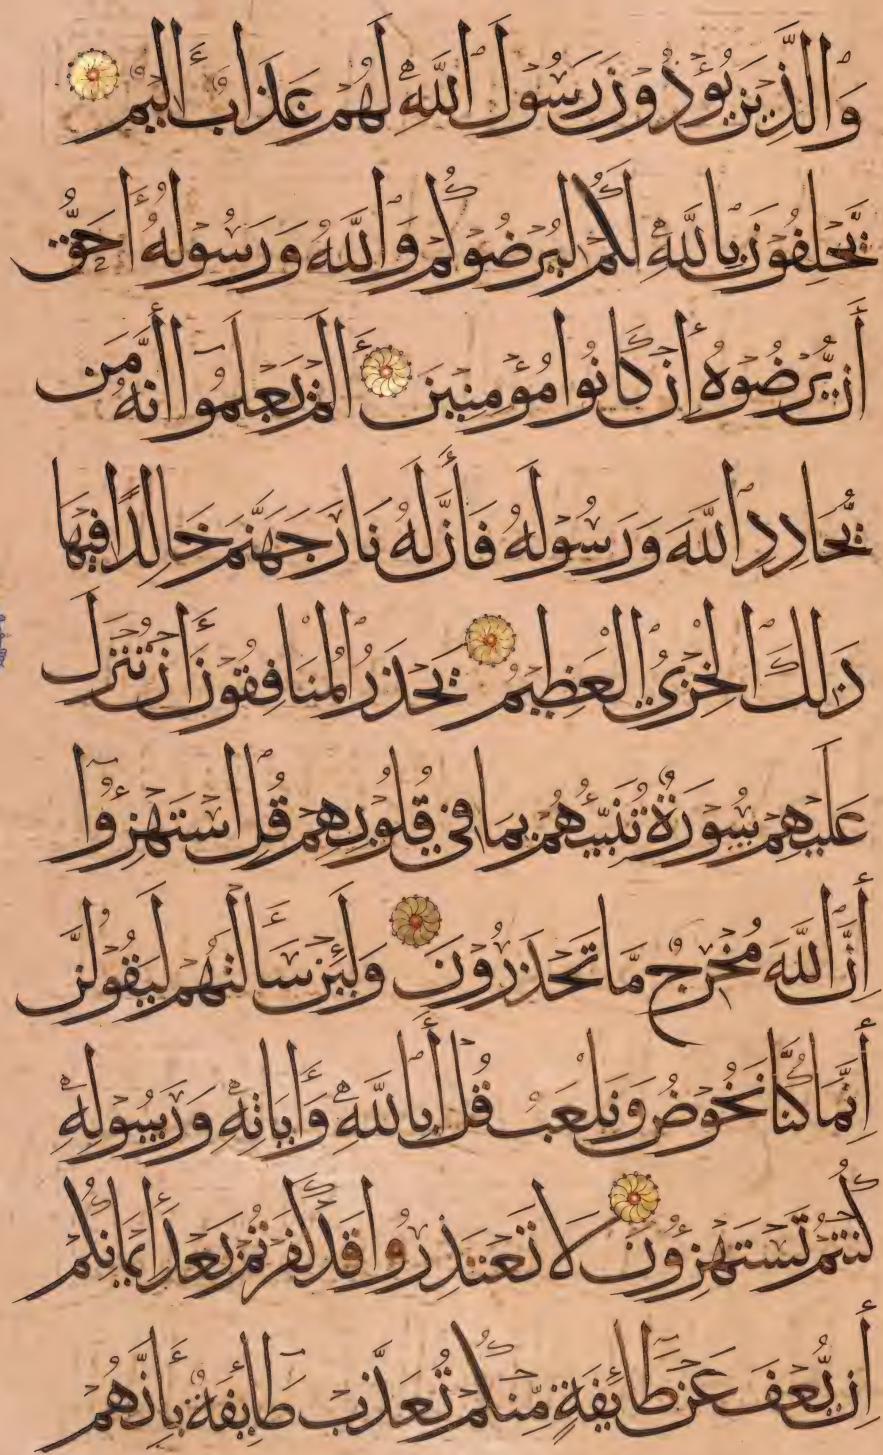 وَالَّذِينَ يُؤْذُونَ رَسُولَ اللَّهِ لَهُمْ عَذَابٌ أَلِيمٌ
يَحْلِفُونَ بِاللَّهِ لَكُمْ لِيُرْضُوكُمْ وَاللَّهُ وَرَسُولُهُ أَحَقُّ
أَنْ يُرْضُوهُ إِنْ كَانُوا مُؤْمِنِينَ أَلَمْ يَعْلَمُوا أَنَّهُ مَنْ
يُحَادِدِ اللَّهَ وَرَسُولَهُ فَأَنَّ لَهُ نَارَ جَهَنَّمَ خَالِدًا فِيهَا
ذَلِكَ الْخِزْيُ الْعَظِيمُ يَحْذَرُ الْمُنَافِقُونَ أَنْ تُنَزَّلَ
عَلَيْهِمْ سُورَةٌ تُنَبِّئُهُمْ بِمَا فِي قُلُوبِهِمْ قُلِ اسْتَهْزِءُوا
إِنَّ اللَّهَ مُخْرِجٌ مَّا تَحْذَرُونَ وَلَئِنْ سَأَلْتَهُمْ لَيَقُولُنَّ
إِنَّمَا كُنَّا نَخُوضُ وَنَلْعَبُ قُلْ أَبِاللَّهِ وَآيَاتِهِ وَرَسُولِهِ
كُنْتُمْ تَسْتَهْزِءُونَ لَا تَعْتَذِرُوا قَدْ كَفَرْتُمْ بَعْدَ إِيمَانِكُمْ
إِنْ يُعْفَ عَنْ طَائِفَةٍ مِّنْكُمْ تُعَذَّبْ طَائِفَةٌ بِأَنَّهُمْ